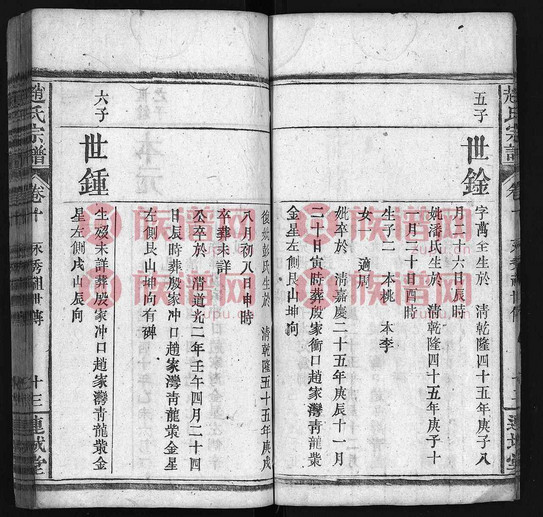 五子
世銓
字萬全生於　清乾隆四十五年庚子八
月二十六日辰時
妣潘氏生於　清乾隆四十五年庚子十
二月二十日酉時
生子二　本桃　本李
女一　適周
妣卒於　清嘉慶二十五年庚辰十一月
二十日寅時葬殷家衝口趙家灣青龍業
金星左側艮山坤向
後妣彭氏生於　清乾隆五十五年庚戌
八月初八日申時
卒葬未詳
公卒於　清道光二年壬午四月二十四
日辰時葬殷家冲口趙家灣青龍業金星
左側艮山坤向有碑
六子
世鍾
生歿未詳葬殷家冲口趙家灣青龍業金
星左側戌山辰向
趙氏宗譜
卷十
永秀祖世傳
十三
連城堂
族譜网